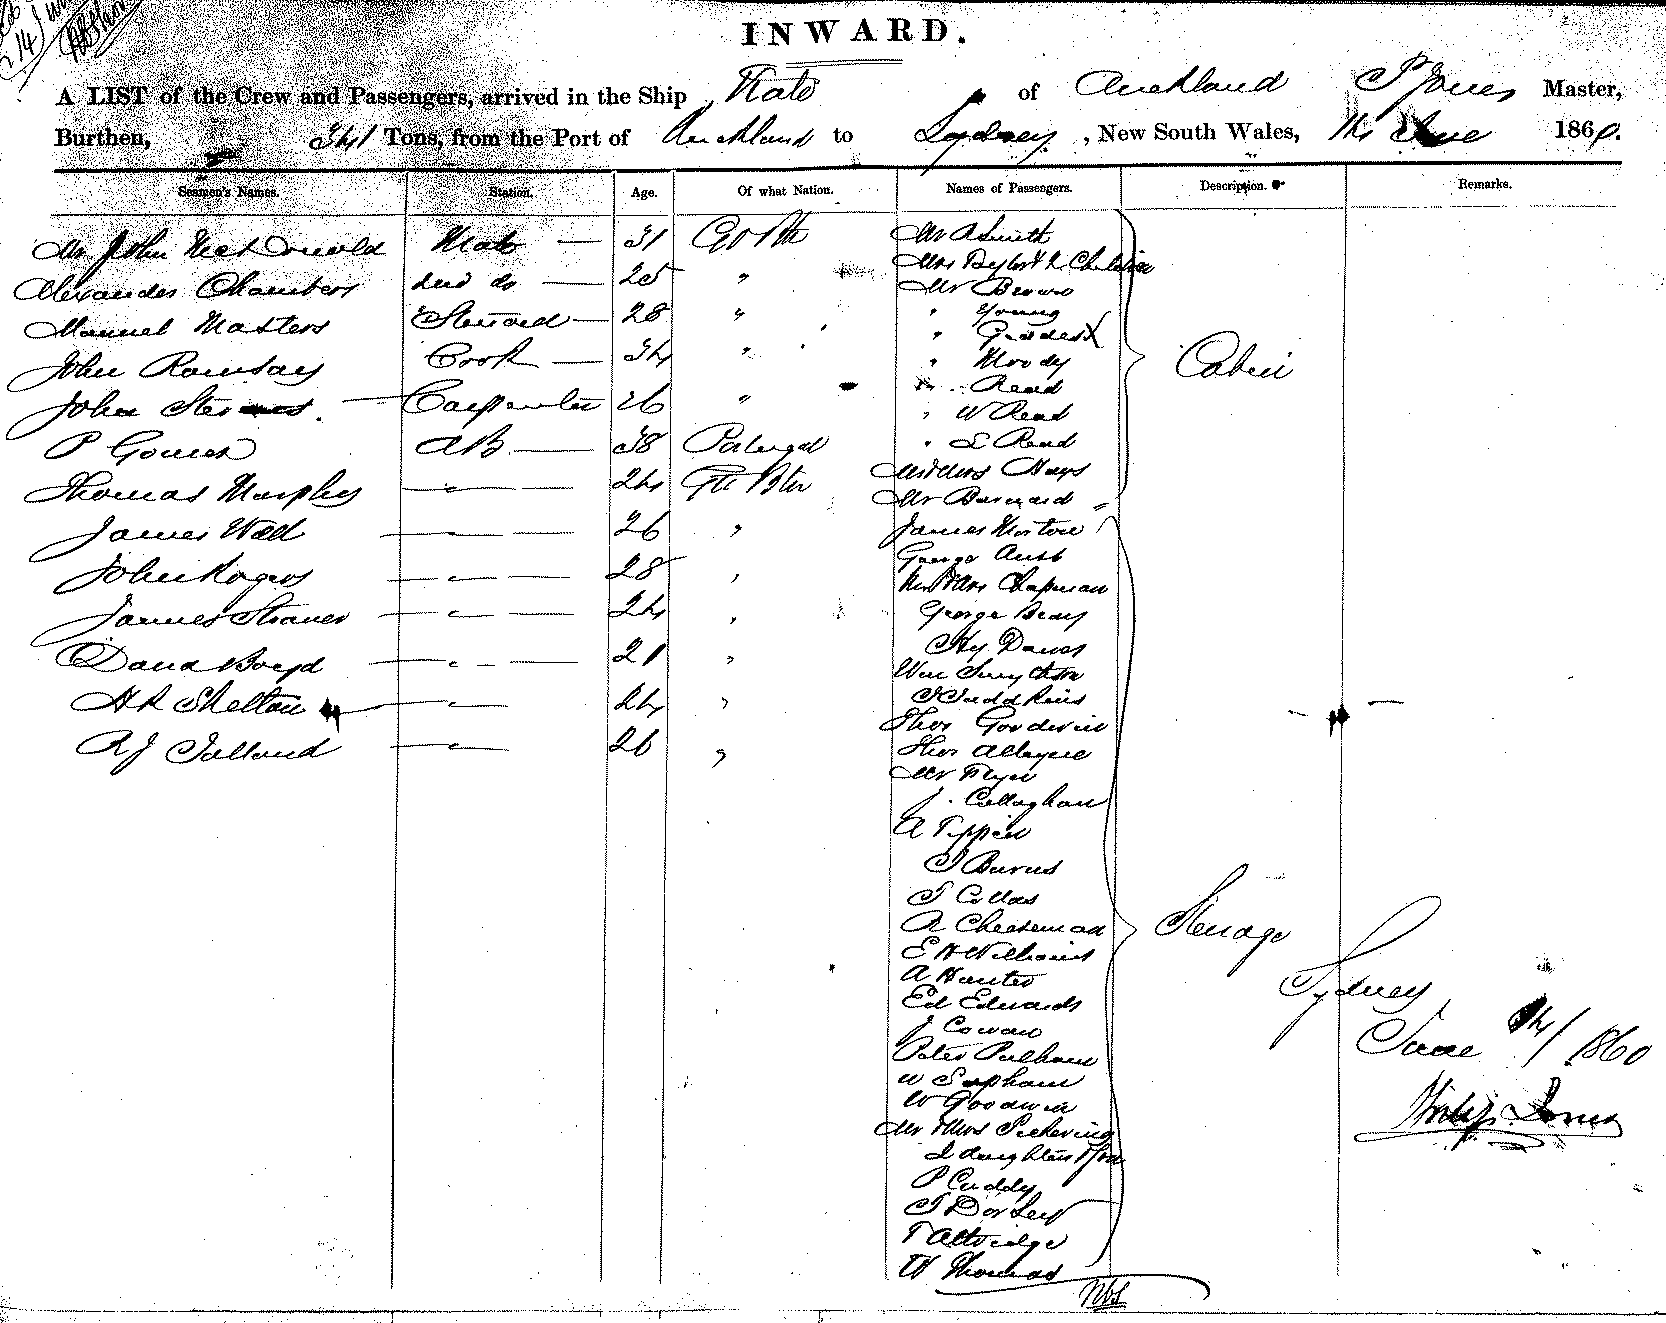 INWARD.
A LIST of the Crew and Passengers, arrived in the Ship Kate of Auckland P Jones Master,
Burthen, 341 Tons, from the Port of Auckland to Sydney, New South Wales, 1860.
Seamen's Names. Station. Age. Of what Nation. Names of Passengers. Description. Remarks.
Mr John Mate 31
Alexander Chambers 2nd do 25 "
Manuel Masters Steward 28 "
John Ramsay Cook 34 "
John Carpenter 26 "
P Gomes AB 38 Portugal
Thomas Murphy " 24 Gt Btn
James Wall " 26 "
John Rogers " 28 "
James " 24 "
David Boyd " 21 "
H R Shelton " 24 "
R J Jalland " 26 "
Mr A Smith
Mrs & 2 Children
Mr Brown
" Young
"
" Moody
" Read
" W Read
" Read
Mr & Mrs Hays
Mr Barnard
Cabin
James Morton
George
Mr & Mrs Chapman
George
Hy Dawes
Wm
Thos Goodwin
Thos Alleyne
Mr
J. Callaghan
A Tippin
J Burns
R Cheeseman
E H Williams
A Hunter
Ed Edwards
J Cowan
Peter
W
W Goodwin
Mr & Mrs Pickering
2 daughters & son
P Cuddy
T
W Thomas
Steerage
Sydney
June 14/1860
Philip Jones